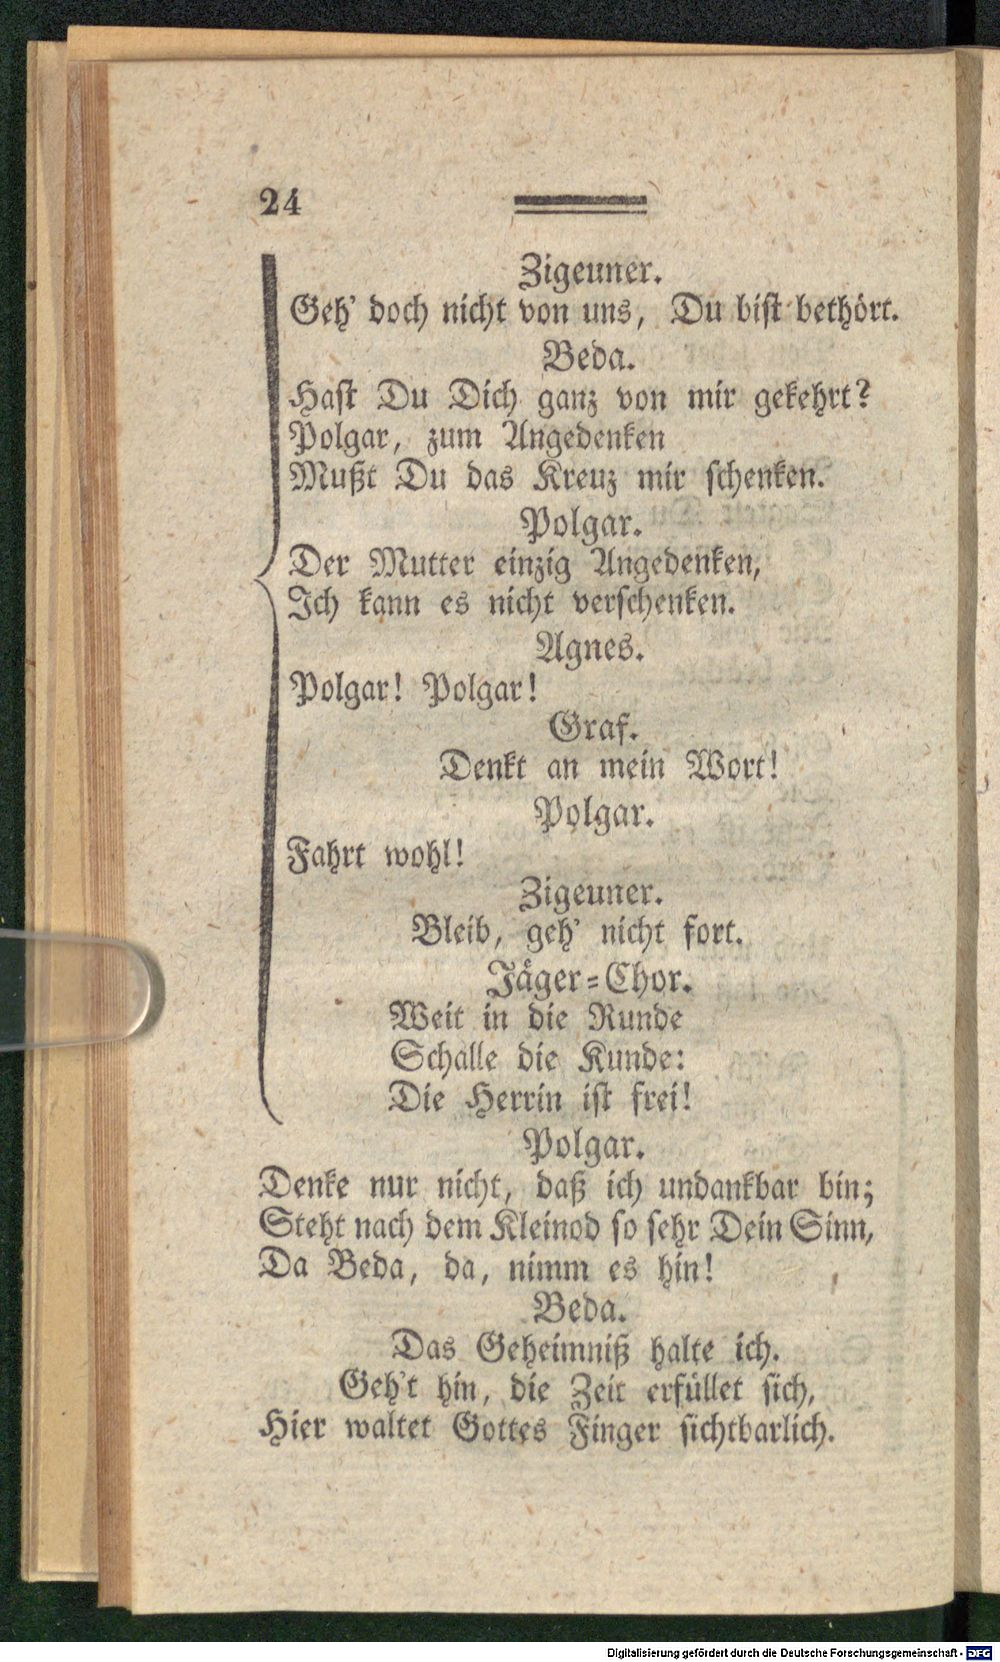 24
Zigeuner.
Geh' doch nicht von uns, Du bist bethört.
Beda.
Hast Du Dich ganz von mir gekehrt?
Polgar, zum Angedenken
Mußt Du das Kreuz mir schenken.
Polgar.
Der Mutter einzig Angedenken,
Ich kann es nicht verschenken.
Agnes.
Polgar! Polgar!
Graf.
Denkt an mein Wort!
Polgar.
Fahrt wohl!
Zigeuner.
Bleib, geh' nicht fort.
Jäger=Chor.
Weit in die Runde
Schalle die Kunde:
Die Herrin ist frei!
Polgar.
Denke nur nicht, daß ich undankbar bin;
Steht nach dem Kleinod so sehr Dein Sinn,
Da Beda, da, nimm es hin!
Beda.
Das Geheimniß halte ich.
Geh't hin, die Zeit erfüllet sich,
Hier waltet Gottes Finger sichtbarlich.
Digitalisierung gefördert durch die Deutsche Forschungsgemeinschaft - DFG